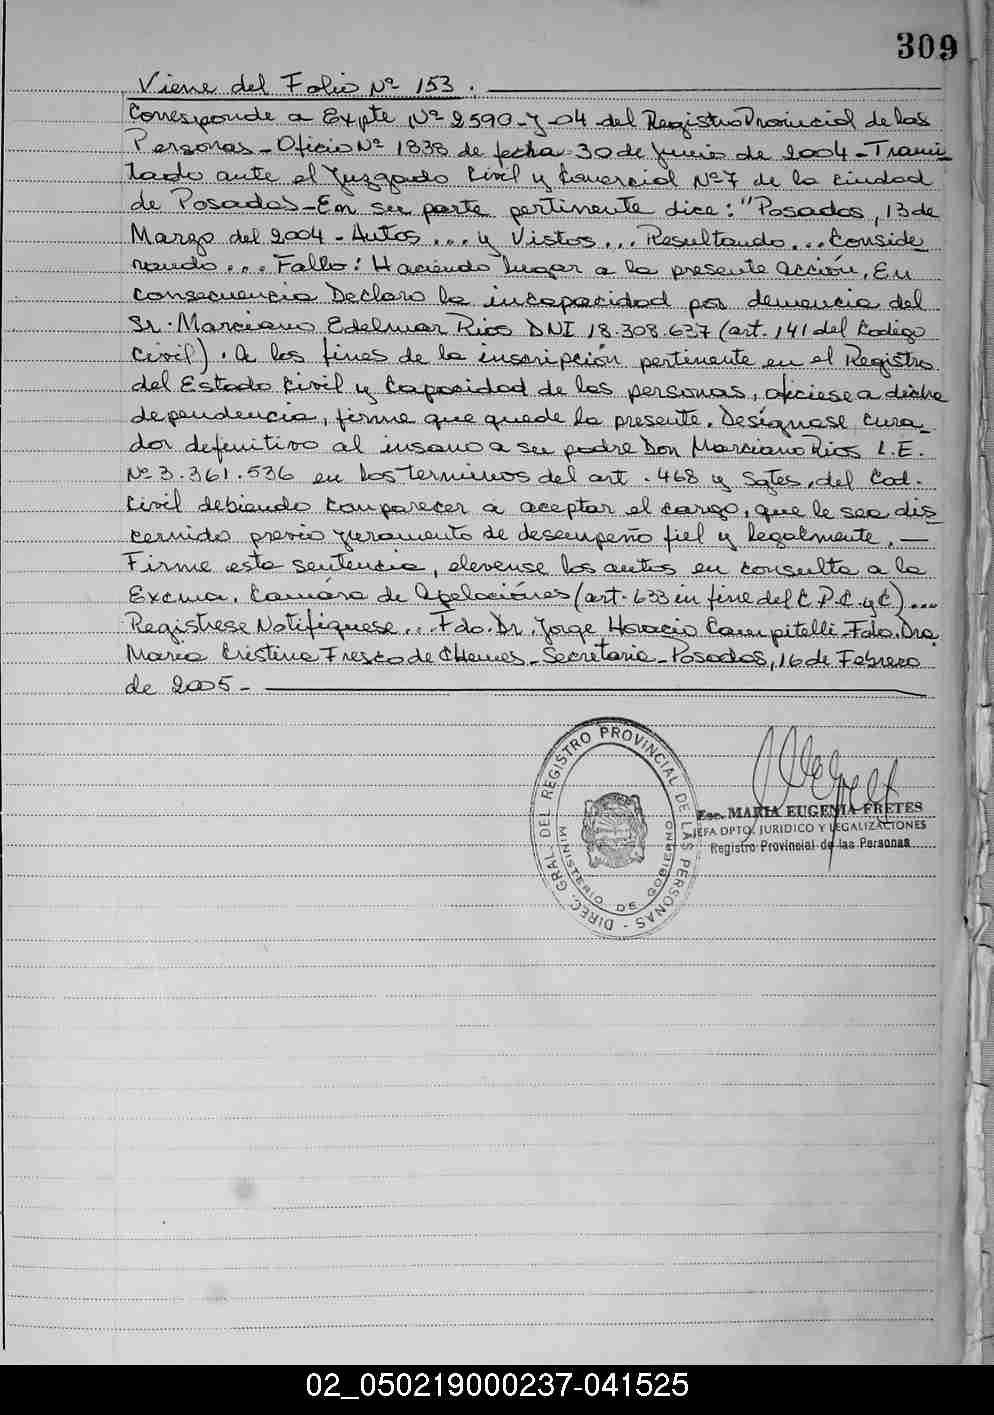 309
Viene del Folio Nº 153.
Corresponde a Expte Nº 2590-J-04 del Registro Provincial de las
Personas - Oficio Nº 1838 de fecha 30 de Junio de 2004 - Trami-
tado ante el Juzgado Civil y Comercial Nº 7 de la ciudad
de Posadas - En su parte pertinente dice: "Posadas, 13 de
Marzo del 2004 - Autos ... y Vistos ... Resultando ... Conside-
rando ... Fallo: Haciendo lugar a la presente acción, En
consecuencia Declaro la incapacidad por demencia del
Sr. Marciano Edelmar Rios DNI 18.308.637 (art. 141 del Codigo
Civil). A los fines de la inscripción pertinente en el Registro
del Estado Civil y Capacidad de las personas, ofíciese a dicha
dependencia, firme que quede la presente. Desígnase cura-
dor definitivo al insano a su padre Don Marciano Rios L.E.
Nº 3.361.536 en los terminos del art. 468 y sgtes, del Cod.
Civil debiendo comparecer a aceptar el cargo, que le sea dis-
cernido previo juramento de desempeño fiel y legalmente. —
Firme esta sentencia, elevense los autos en consulta a la
Excma. Camára de Apelaciónes (art. 633 in fine del C.P.C. y C) ...
Registrese Notifiquese .. Fdo. Dr. Jorge Horacio Campitelli. Fdo. Dra
Maria Cristina Fresco de CHemes - Secretaria - Posadas, 16 de Febrero
de 2005 -
DIREC. GRAL. DEL REGISTRO PROVINCIAL DE LAS PERSONAS -
MINISTERIO DE GOBIERNO
Esc. MARIA EUGENIA FRETES
JEFA DPTO. JURIDICO Y LEGALIZACIONES
Registro Provincial de las Personas
02_050219000237-041525